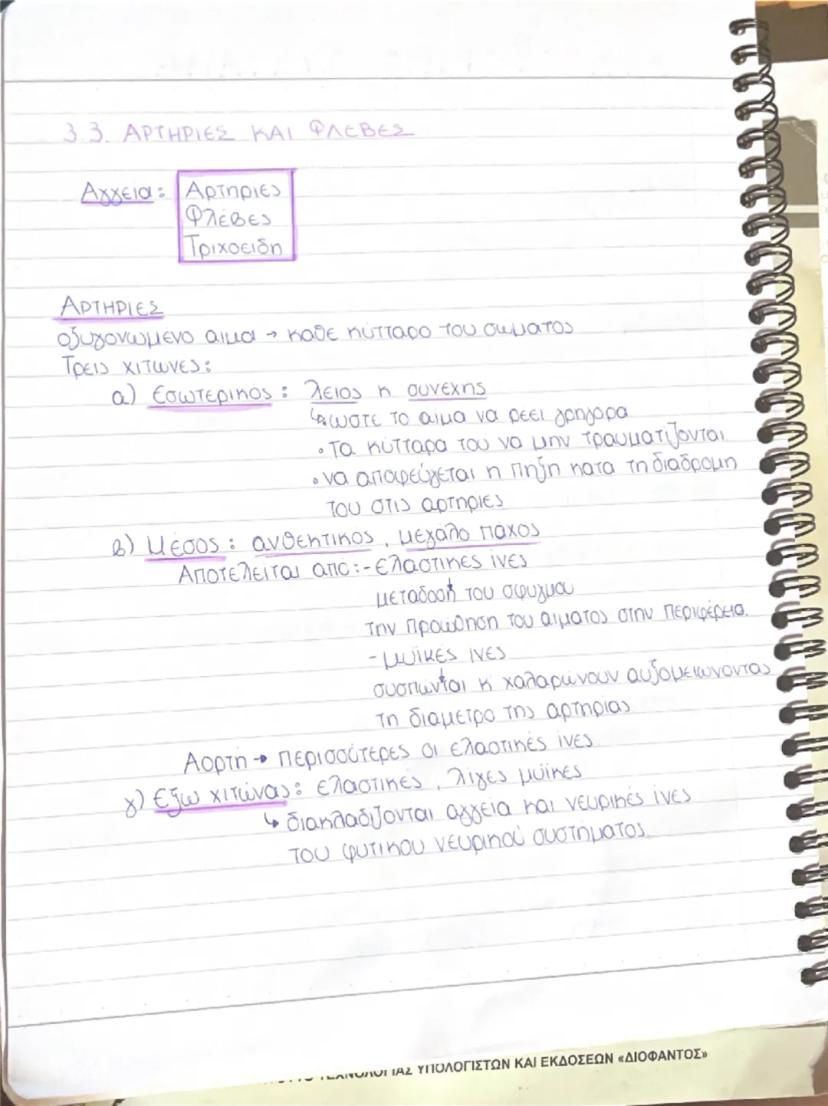 3.3. ΑΡΤΗΡΙΕΣ ΚΑΙ ΦΛΕΒΕΣ
Αγγεια: Αρτηριες
Φλέβες
Τριχοειδη
ΑΡΤΗΡΙΕΣ
οξυγονωμενο αιμα → καθε κύτταρο του σωματος
Τρεις χιτωνες:
α) Εσωτερικος: λειος κ συνεχης
↳ ωστε το αιμα να ρεει γρηγορα
• Τα κύτταρα του να μην τραυματιζονται
• να αποφεύγεται η πηξη κατα τη διαδρομη
του στις αρτηριες
β) Μέσος: ανθεκτικος, μεγαλο παχος
Αποτελειται απο: - ελαστικές ίνες
μεταδοση του σφυγμου
την προωθηση του αιματος στην περιφέρεια.
- μυϊκές ινες
συσπώνται κ χαλαρώνουν αυξομειωνοντας
τη διαμετρο της αρτηριας
Αορτή → περισσότερες οι ελαστικές ίνες
γ) Εξω χιτώνας: ελαστικές, λιγες μυϊκες
↳ διακλαδιζονται αγγεια και νευρικές ίνες
του φυτικου νευρικού συστήματος.
ΤΕΧΝΟΛΟΓΙΑΣ ΥΠΟΛΟΓΙΣΤΩΝ ΚΑΙ ΕΚΔΟΣΕΩΝ «ΔΙΟΦΑΝΤΟΣ»